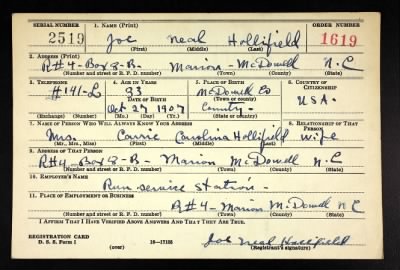 SERIAL NUMBER 1. NAME (Print) ORDER NUMBER
2519 Joe Neal Hollifield 1619
(First) (Middle) (Last)
2. ADDRESS (Print)
R#4-Box 8-B- Marion- McDowell N.C
(Number and street or R. F. D. number) (Town) (County) (State)
3. TELEPHONE 4. AGE IN YEARS 5. PLACE OF BIRTH 6. COUNTRY OF CITIZENSHIP
#141-L 33 McDowell Co
DATE OF BIRTH (Town or county)
Oct 27 1907 County- USA-
(Exchange) (Number) (Mo.) (Day) (Yr.) (State or country)
7. NAME OF PERSON WHO WILL ALWAYS KNOW YOUR ADDRESS 8. RELATIONSHIP OF THAT PERSON
Mrs. Carrie Carolina Hollifield Wife
(Mr., Mrs., Miss) (First) (Middle) (Last)
9. ADDRESS OF THAT PERSON
R#4-Box 8-B- Marion McDowell N.C
(Number and street or R. F. D. number) (Town) (County) (State)
10. EMPLOYER'S NAME
Run Service Station-
11. PLACE OF EMPLOYMENT OR BUSINESS
R#4- Marion McDowell N.C
(Number and street or R. F. D. number) (Town) (County) (State)
I AFFIRM THAT I HAVE VERIFIED ABOVE ANSWERS AND THAT THEY ARE TRUE.
REGISTRATION CARD
D. S. S. Form 1 (over) 16—17105 Joe Neal Hollifield
(Registrant's signature)